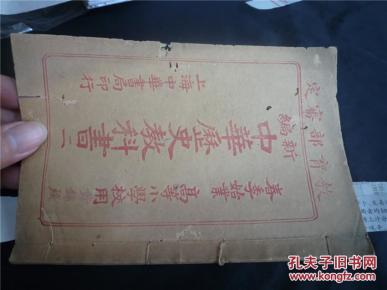 教育部審定
春季始業
高等小學校用
新編
中華歷史教科書 二
上海中華書局印行
孔夫子旧书网
KONGFZ.COM